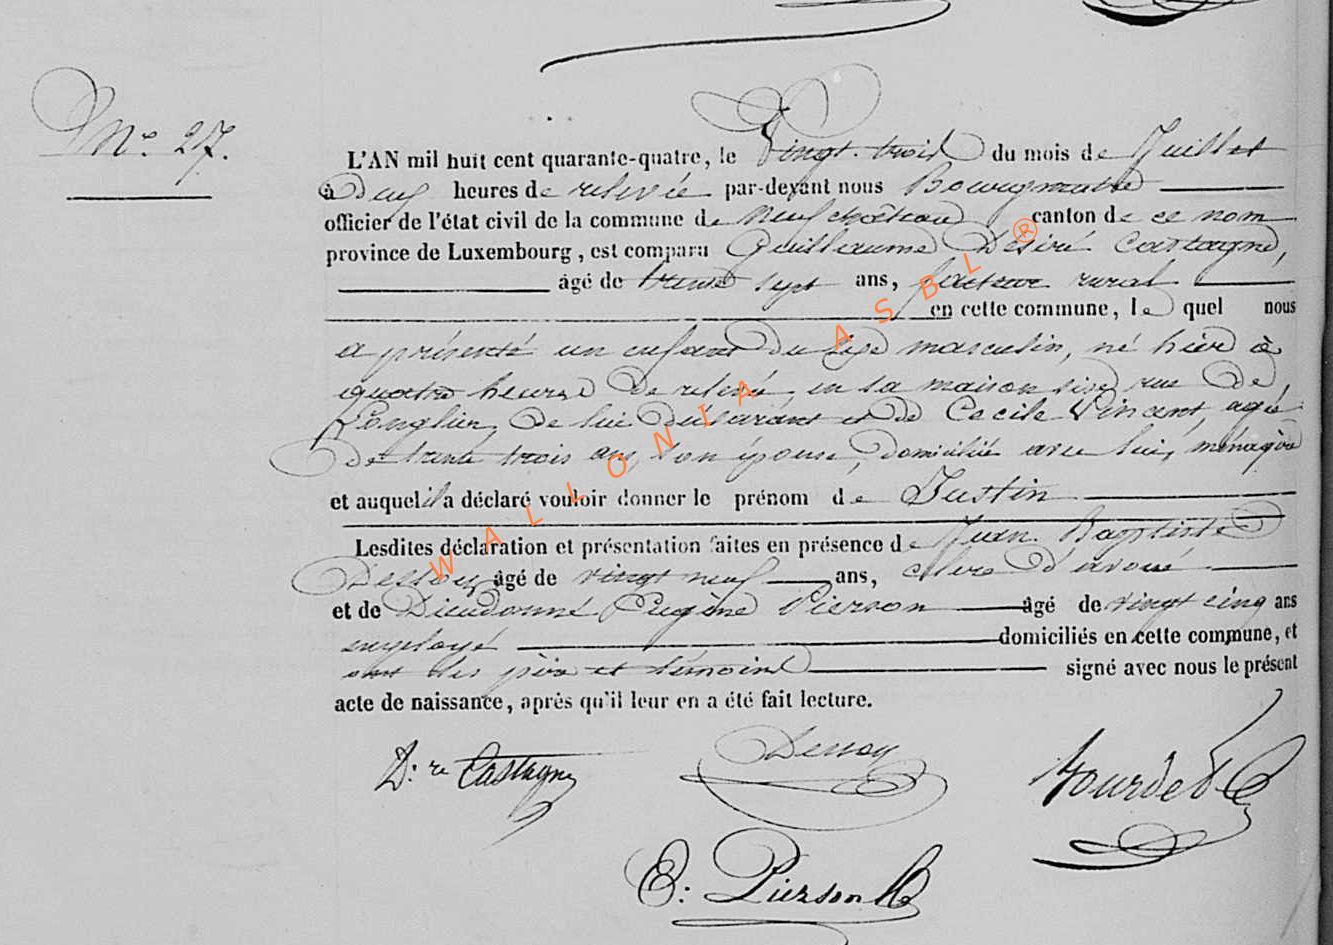 N° 27.
L'AN mil huit cent quarante-quatre, le Vingt-trois du mois de Juillet
à deux heures de relevée par-devant nous Bourgmestre
officier de l'état civil de la commune de Neufchâteau canton de ce nom
province de Luxembourg, est comparu Guillaume Désiré Castagne,
âgé de trente sept ans, facteur rural
en cette commune, lequel nous
a présenté un enfant du sexe masculin, né hier à
quatre heures de relevée, en sa maison sise rue de
Longlier, de lui déclarant et de Cécile Vincent, agée
de trente trois ans, son épouse, domiciliée avec lui, ménagère
et auquel il a déclaré vouloir donner le prénom de Justin
Lesdites déclaration et présentation faites en présence de Jean Baptiste
Dessoy âgé de vingt neuf ans, clerc d'avoué
et de Dieudonné Eugène Pierson âgé de vingt cinq ans
employé domiciliés en cette commune, et
ont les père et témoins signé avec nous le présent
acte de naissance, après qu'il leur en a été fait lecture.
D: ré Castagne Dessoy
E: Pierson
WALLONIA ASBL ®